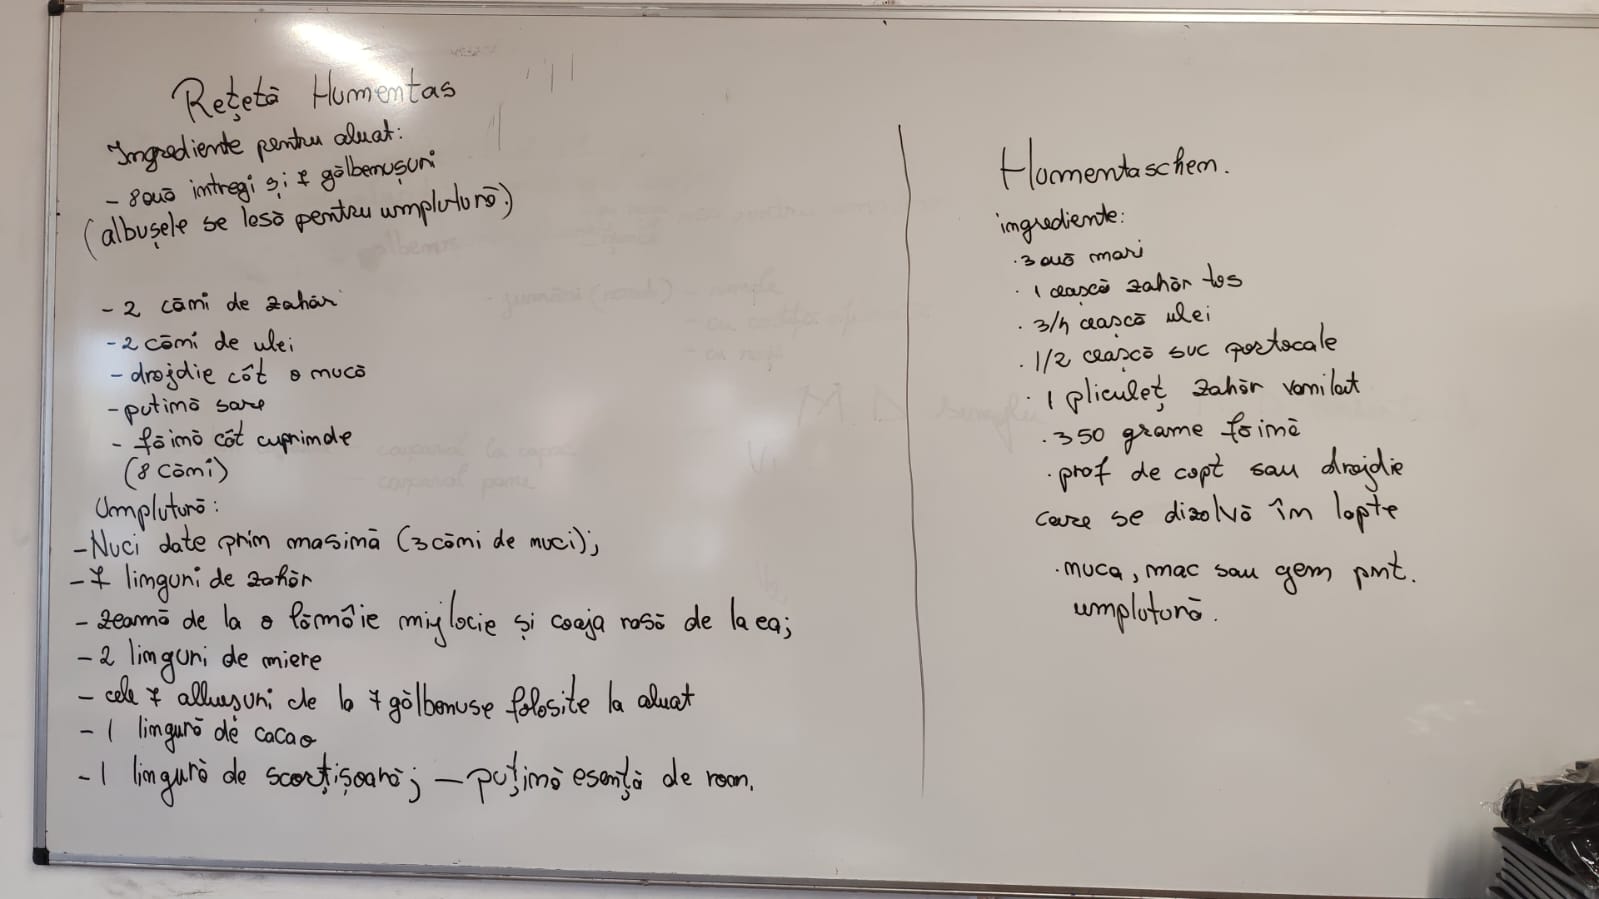 Rețetă Humentas
Ingrediente pentru aluat:
- 8 ouă intregi și 7 gălbenușuri
(albușele se lasă pentru umplutură.)
- 2 căni de zahăr
- 2 căni de ulei
- drojdie cât o nucă
- putină sare
- făină cât cuprinde
(8 căni)
Umplutură:
- Nuci date prin masină (3 căni de nuci);
- 7 linguri de zahăr
- zeamă de la o lămâie mijlocie și coaja rasă de la ea;
- 2 linguri de miere
- cele 7 albușuri de la 7 gălbenuse folosite la aluat
- 1 lingură de cacao
- 1 lingură de scorțișoară; - puțină esență de rom.
Humentaschen.
ingrediente:
· 3 ouă mari
· 1 ceașcă zahăr tos
· 3/4 ceașcă ulei
· 1/2 ceașcă suc portocale
· 1 pliculeț zahăr vanilat
· 350 grame făină
· praf de copt sau drojdie
care se dizolvă în lapte
· nuca, mac sau gem pnt.
umplutură.